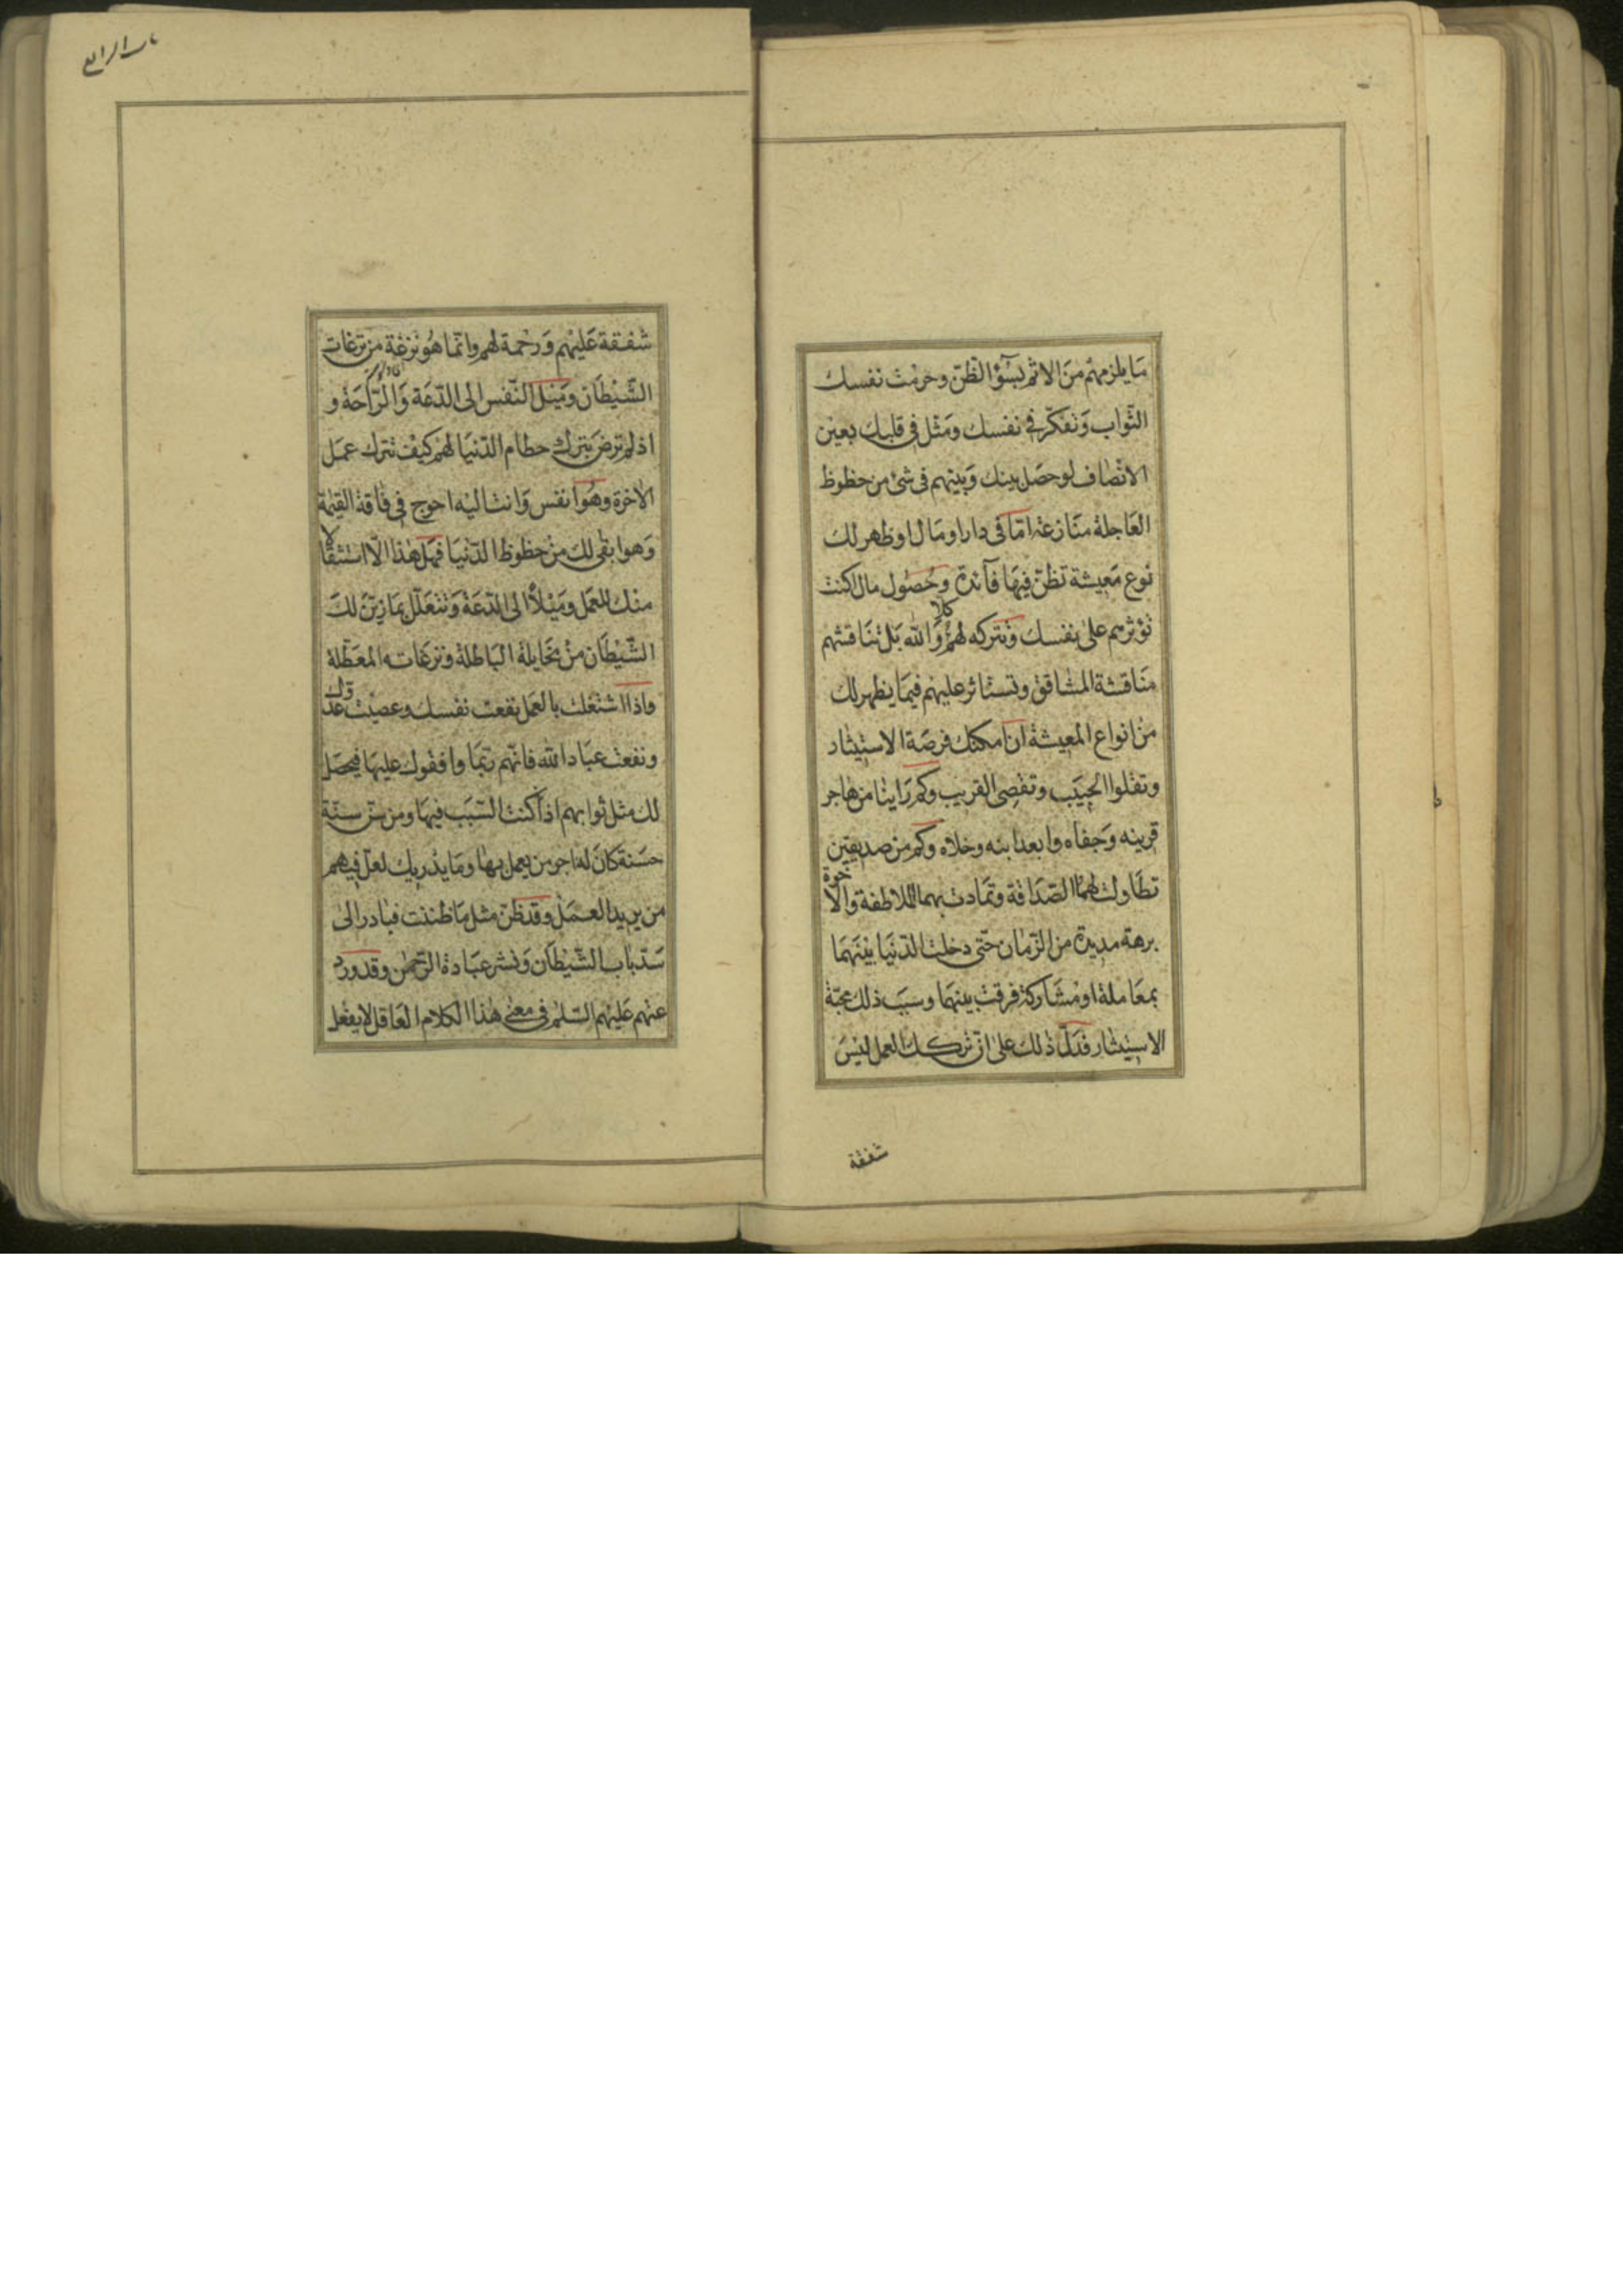 ما يلزمهم من الاثم بسوء الظن وحرمت نفسك
الثواب وتفكر في نفسك ومثل في قلبك بعين
الانصاف لو حصل بينك وبينهم في شئ من حظوظ
العاجلة منازعة اما في دار او مال او ظهر لك
نوع معيشة تظن فيها فآئدة وحصول مال اكنت
تؤثرهم على نفسك وتتركه لهم كلا والله بل تناقشهم
مناقشة المشاقق وتستاثر عليهم فيما يظهر لك
من انواع المعيشة ان امكنك فرصة الاستيثار
وتقلوا الحبيب وتقصى القريب وكم راينا من هاجر
قرينه وجفاه وابعد ابنه وخلاه وكم من صديقين
تطاولت لهما الصداقة وتمادت بهما الملاطفة والاخوة
برهة مديدة من الزمان حتى دخلت الدنيا بينهما
بمعاملة او مشاركة فرقت بينهما وسبب ذلك محبة
الاستيثار فدل ذلك على ان تركك العمل ليس
شفقة
شفقة عليهم ورحمة لهم وانما هو نزغة من نزغات
الشيطان وميل النفس الى الدعة والراحة و
اذ لم ترض بترك حطام الدنيا لهم كيف تترك عمل
الاخرة وهو انفس وانت اليه احوج في فاقة القيمة
وهو ابقى لك من حظوظ الدنيا فهل هذا الا استثقالا
منك للعمل وميلا الى الدعة وتتعلل بما زين لك
الشيطان من مخايله الباطلة ونزغاته المعطلة
واذا اشتغلت بالعمل نفعت نفسك وعصيت عدوك
ونفعت عباد الله فانهم ربما وافقوك عليها فيحصل
لك مثل ثوابهم اذا كنت السبب فيها ومن سن سنة
حسنة كان له اجر من يعمل بها وما يدريك لعل فيهم
من يريد العمل وقد ظن مثل ما ظننت فبادر الى
سد باب الشيطان ونشر عبادة الرحمن وقد ورد
عنهم عليهم السلم في معنى هذا الكلام العاقل لا يفعل